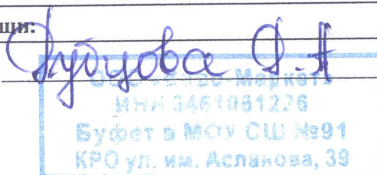 щи:
Дубцова Д.А
Маркет"
ИНН 3461061226
Буфет в МОУ СШ №91
КРО ул. им. Асланова, 39